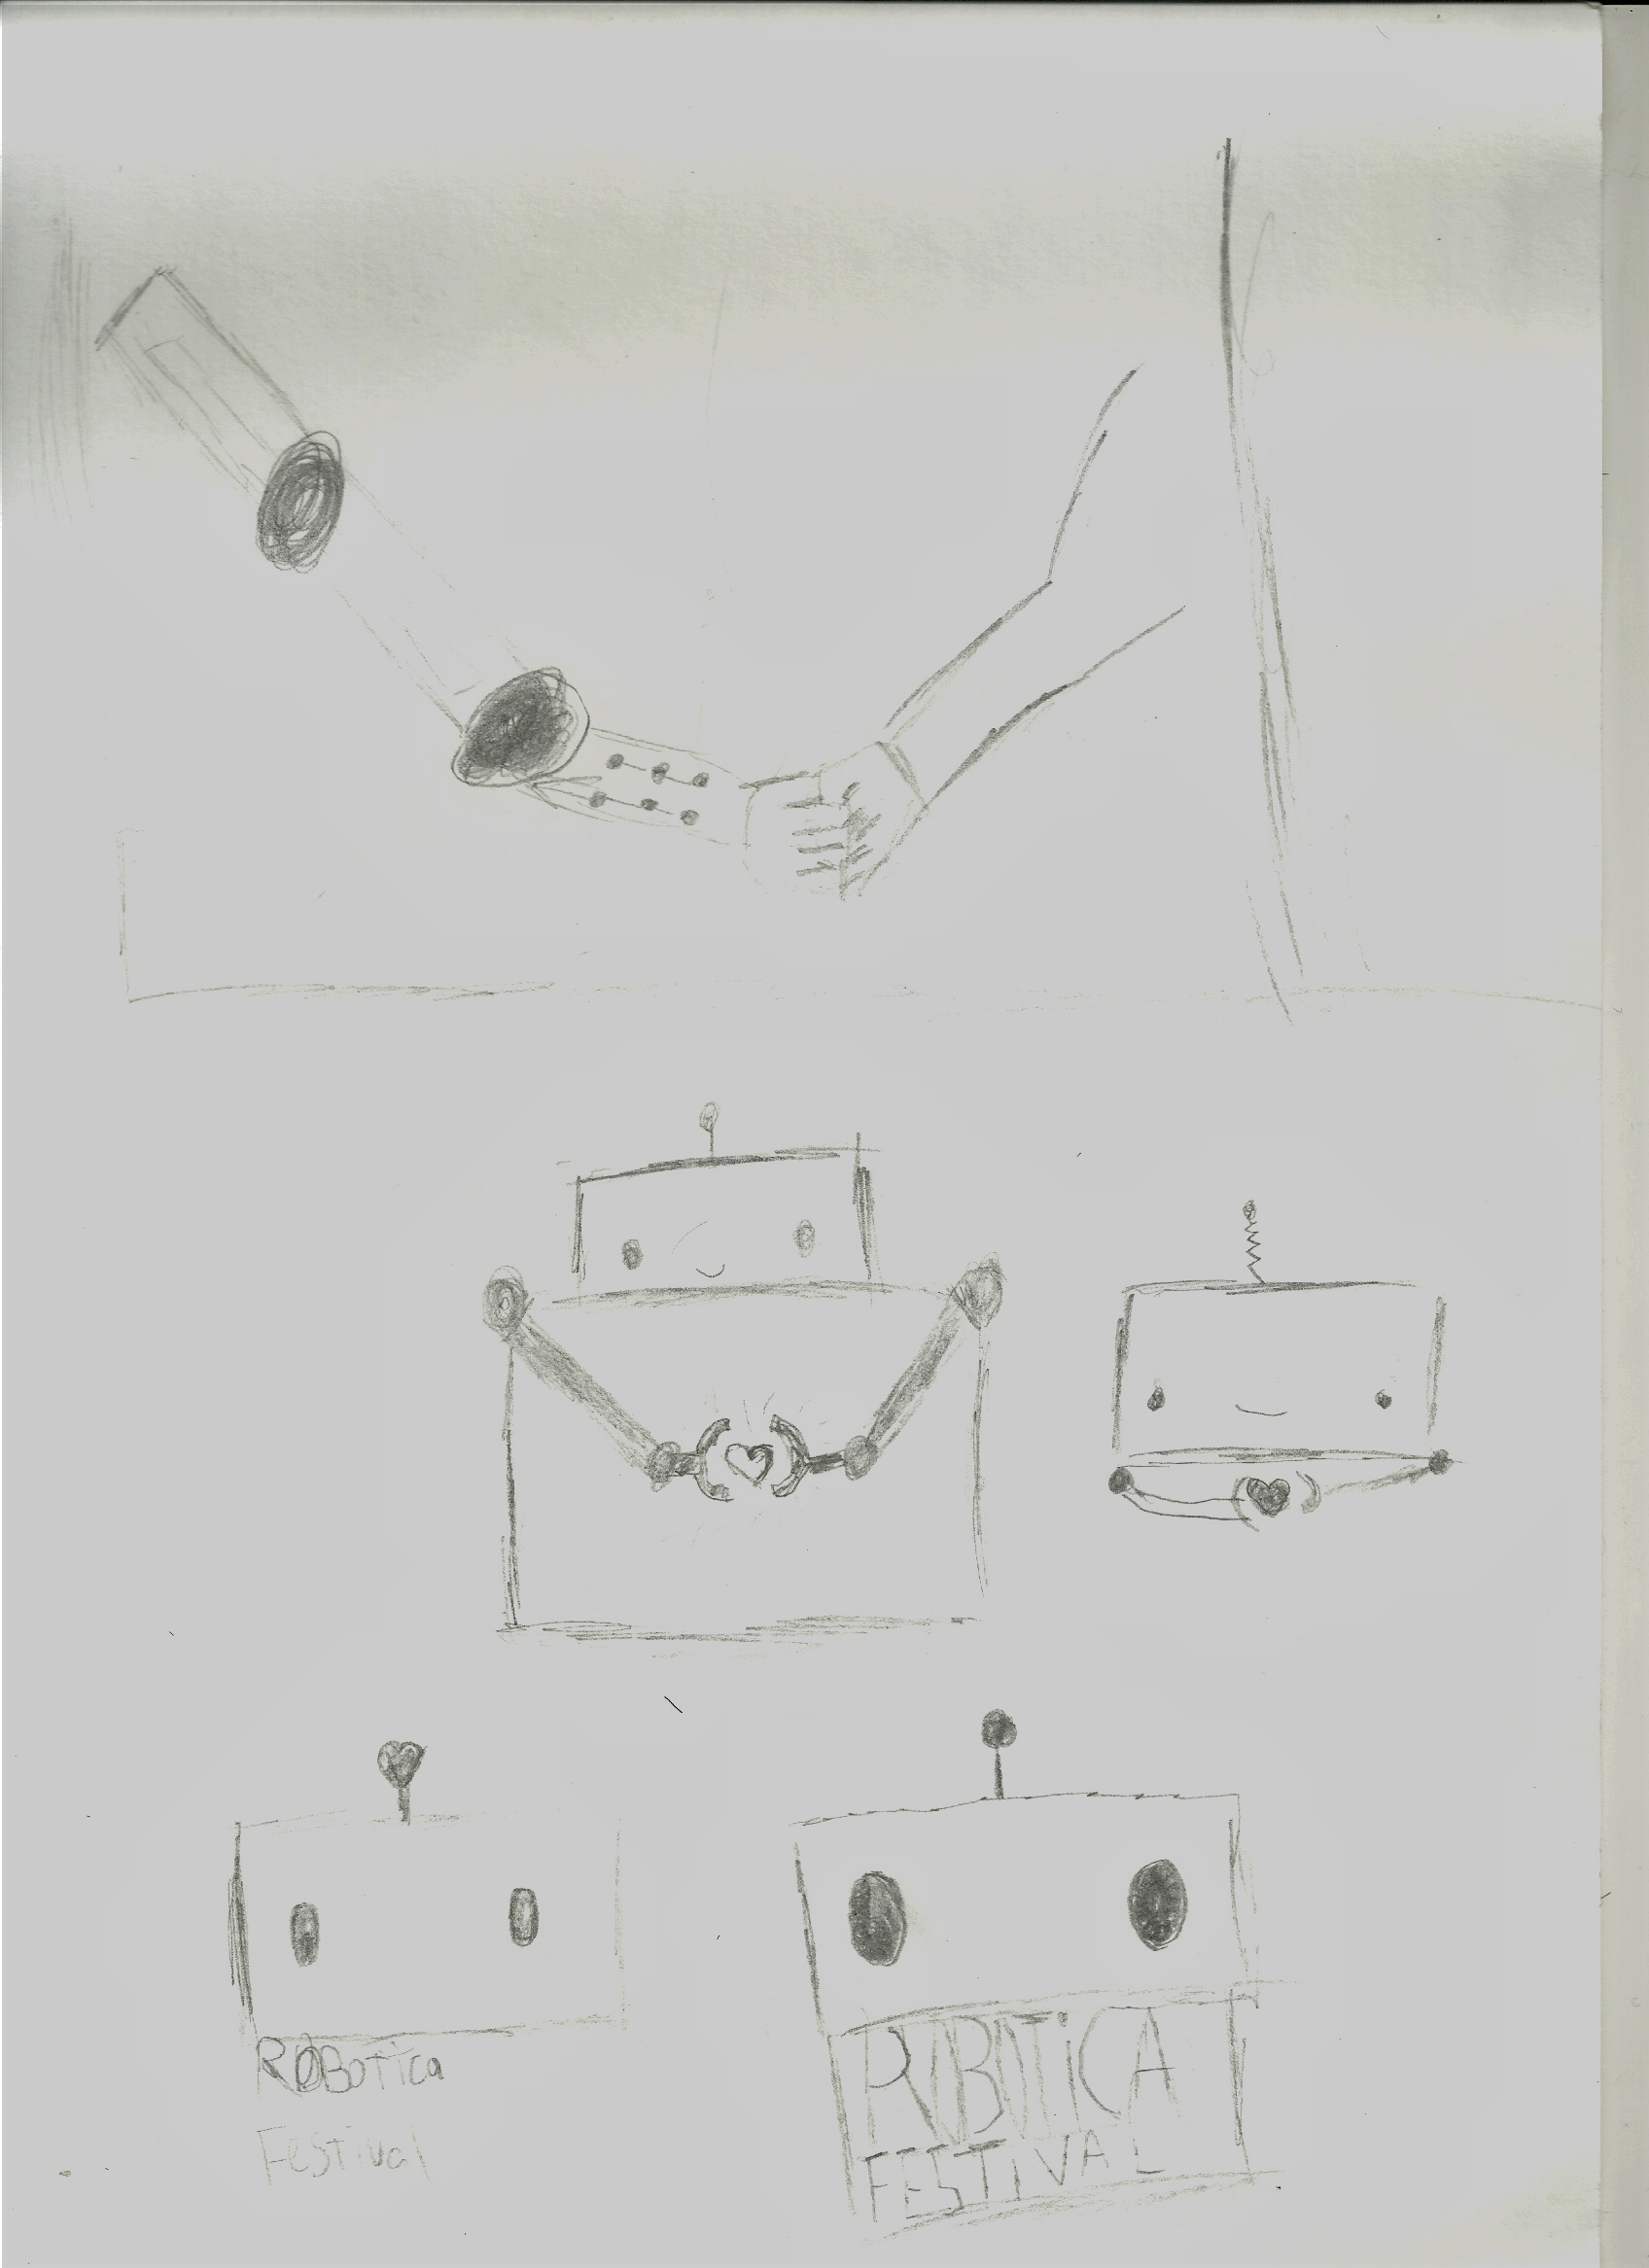 RoBoTica
FeSTival
ROBOTiCA
FESTiVAL